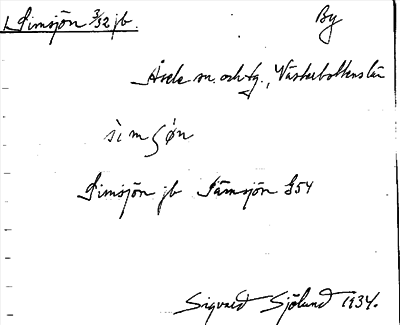 Simsjön 3/52 jb. By
Åsele sn. och tg., Västerbottens län
sìmʃøn
Simsjön jb Sämsjön S54
Sigvard Sjölund 1934.